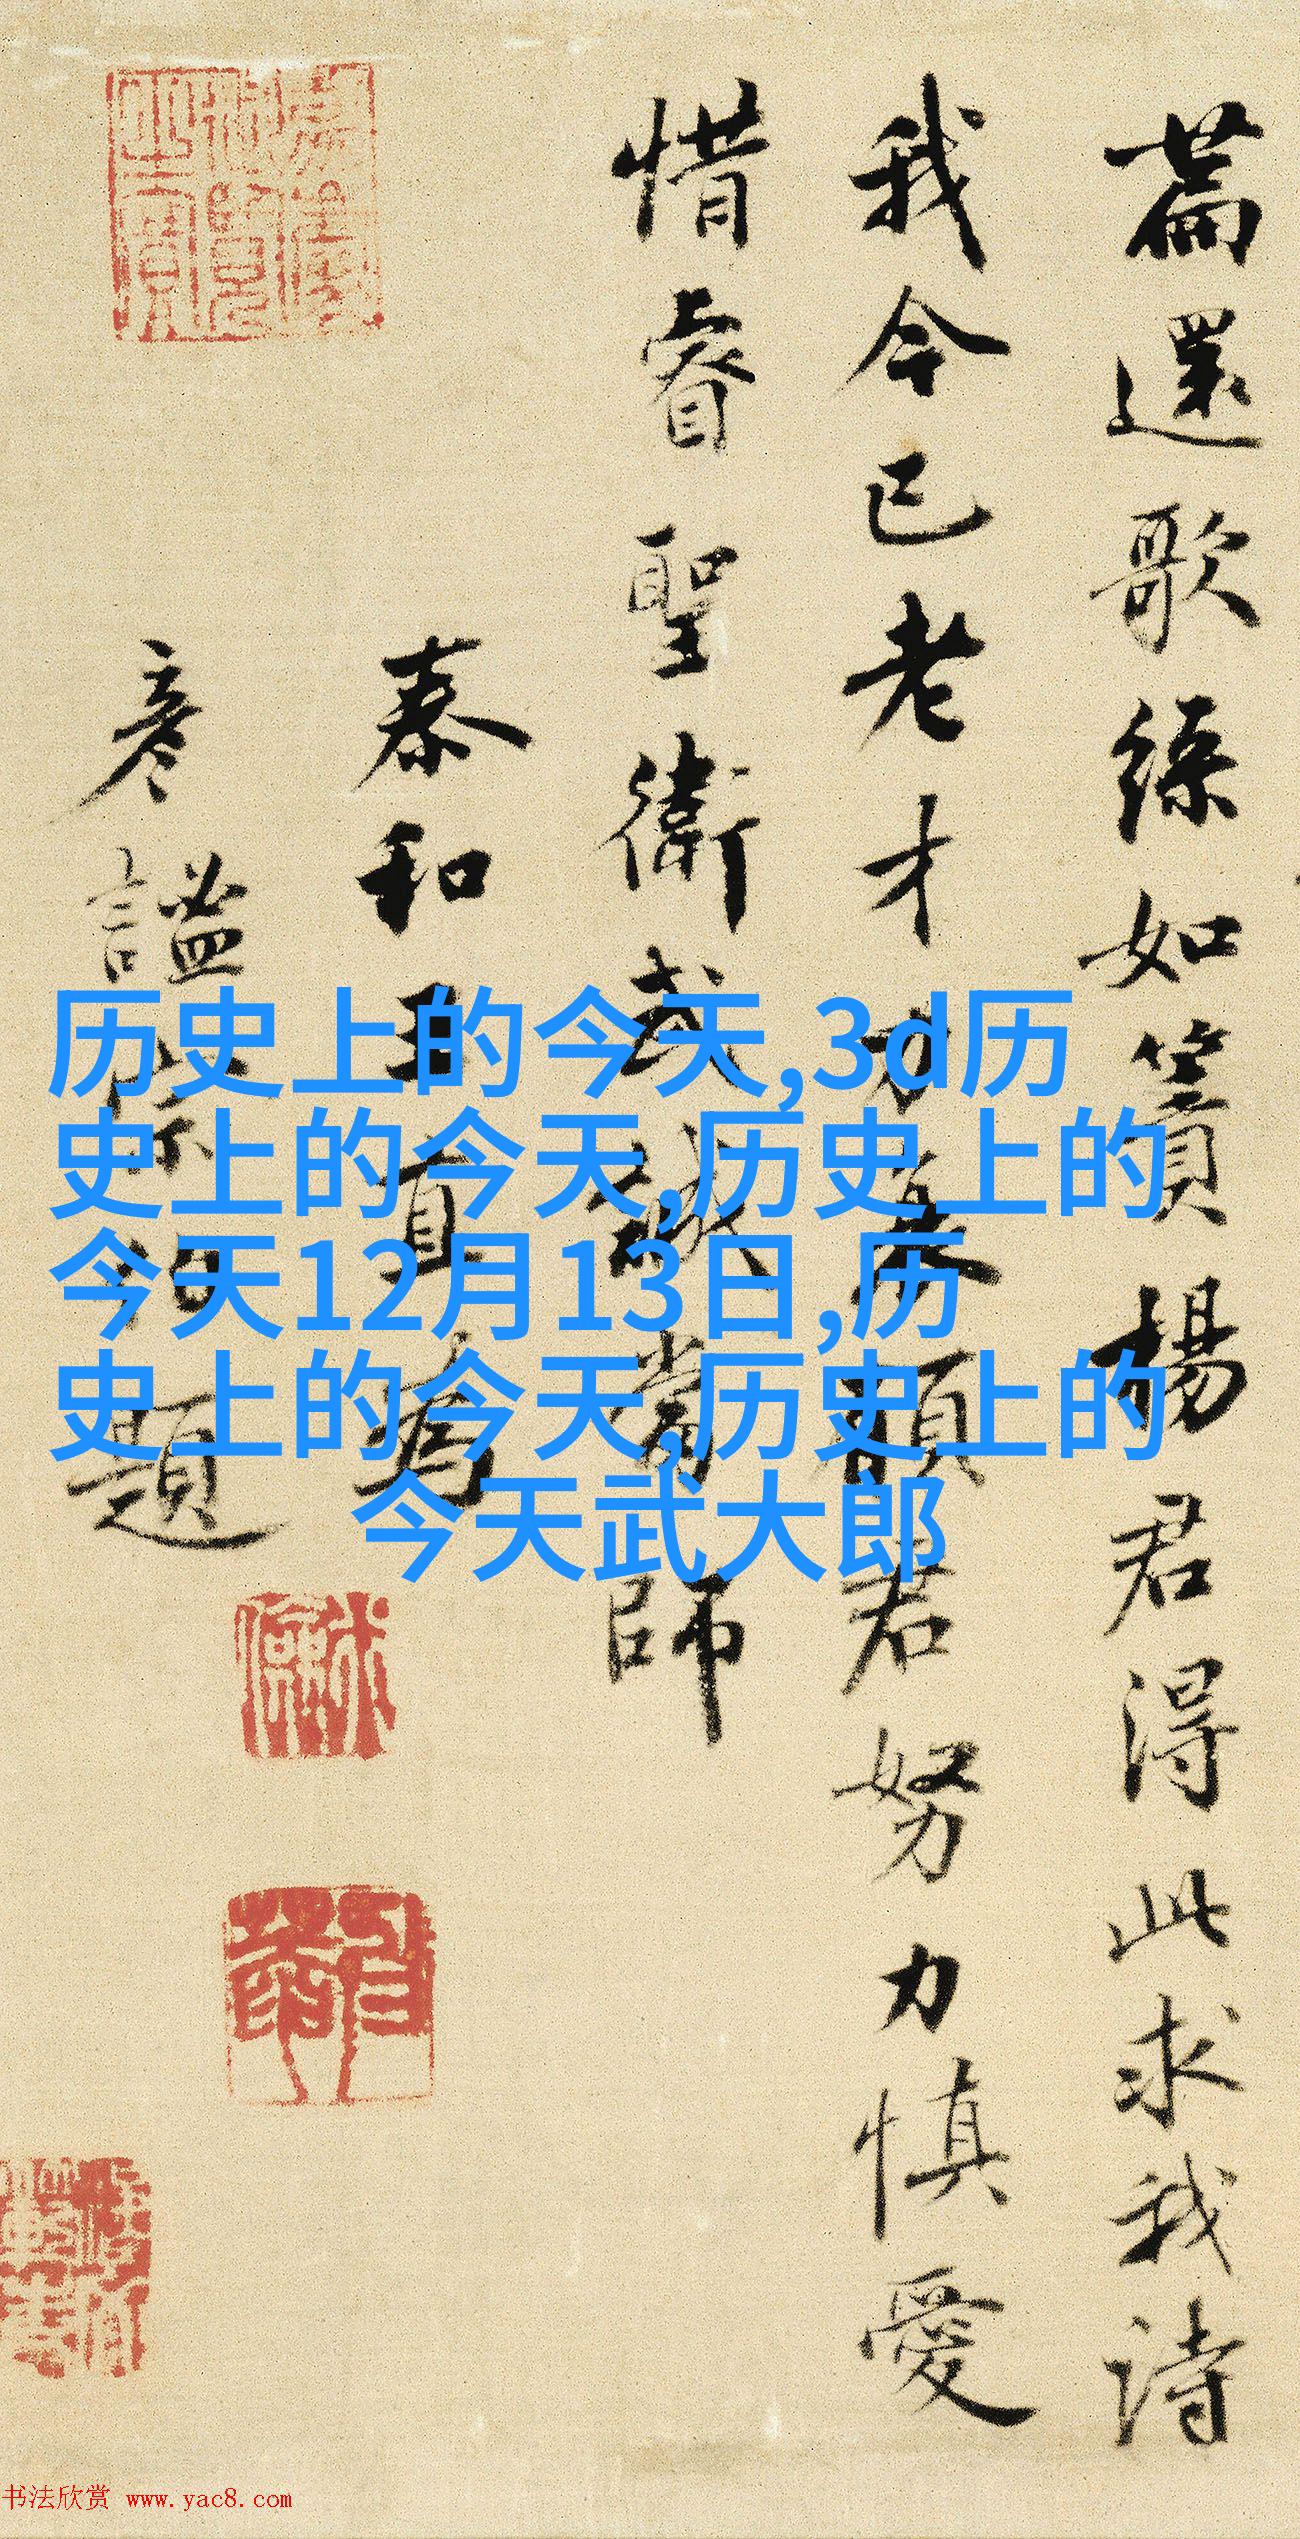 篇還歌綠如簀楊君得此求我詩
我今已老才力衰願君努力慎愛
惜睿聖衛武誠當師
泰和王直為
彥謐宗伯題
历史上的今天,3d历
史上的今天,历史上的
今天12月13日,历
史上的今天,历史上的
今天武大郎
书法欣赏 www.yac8.com